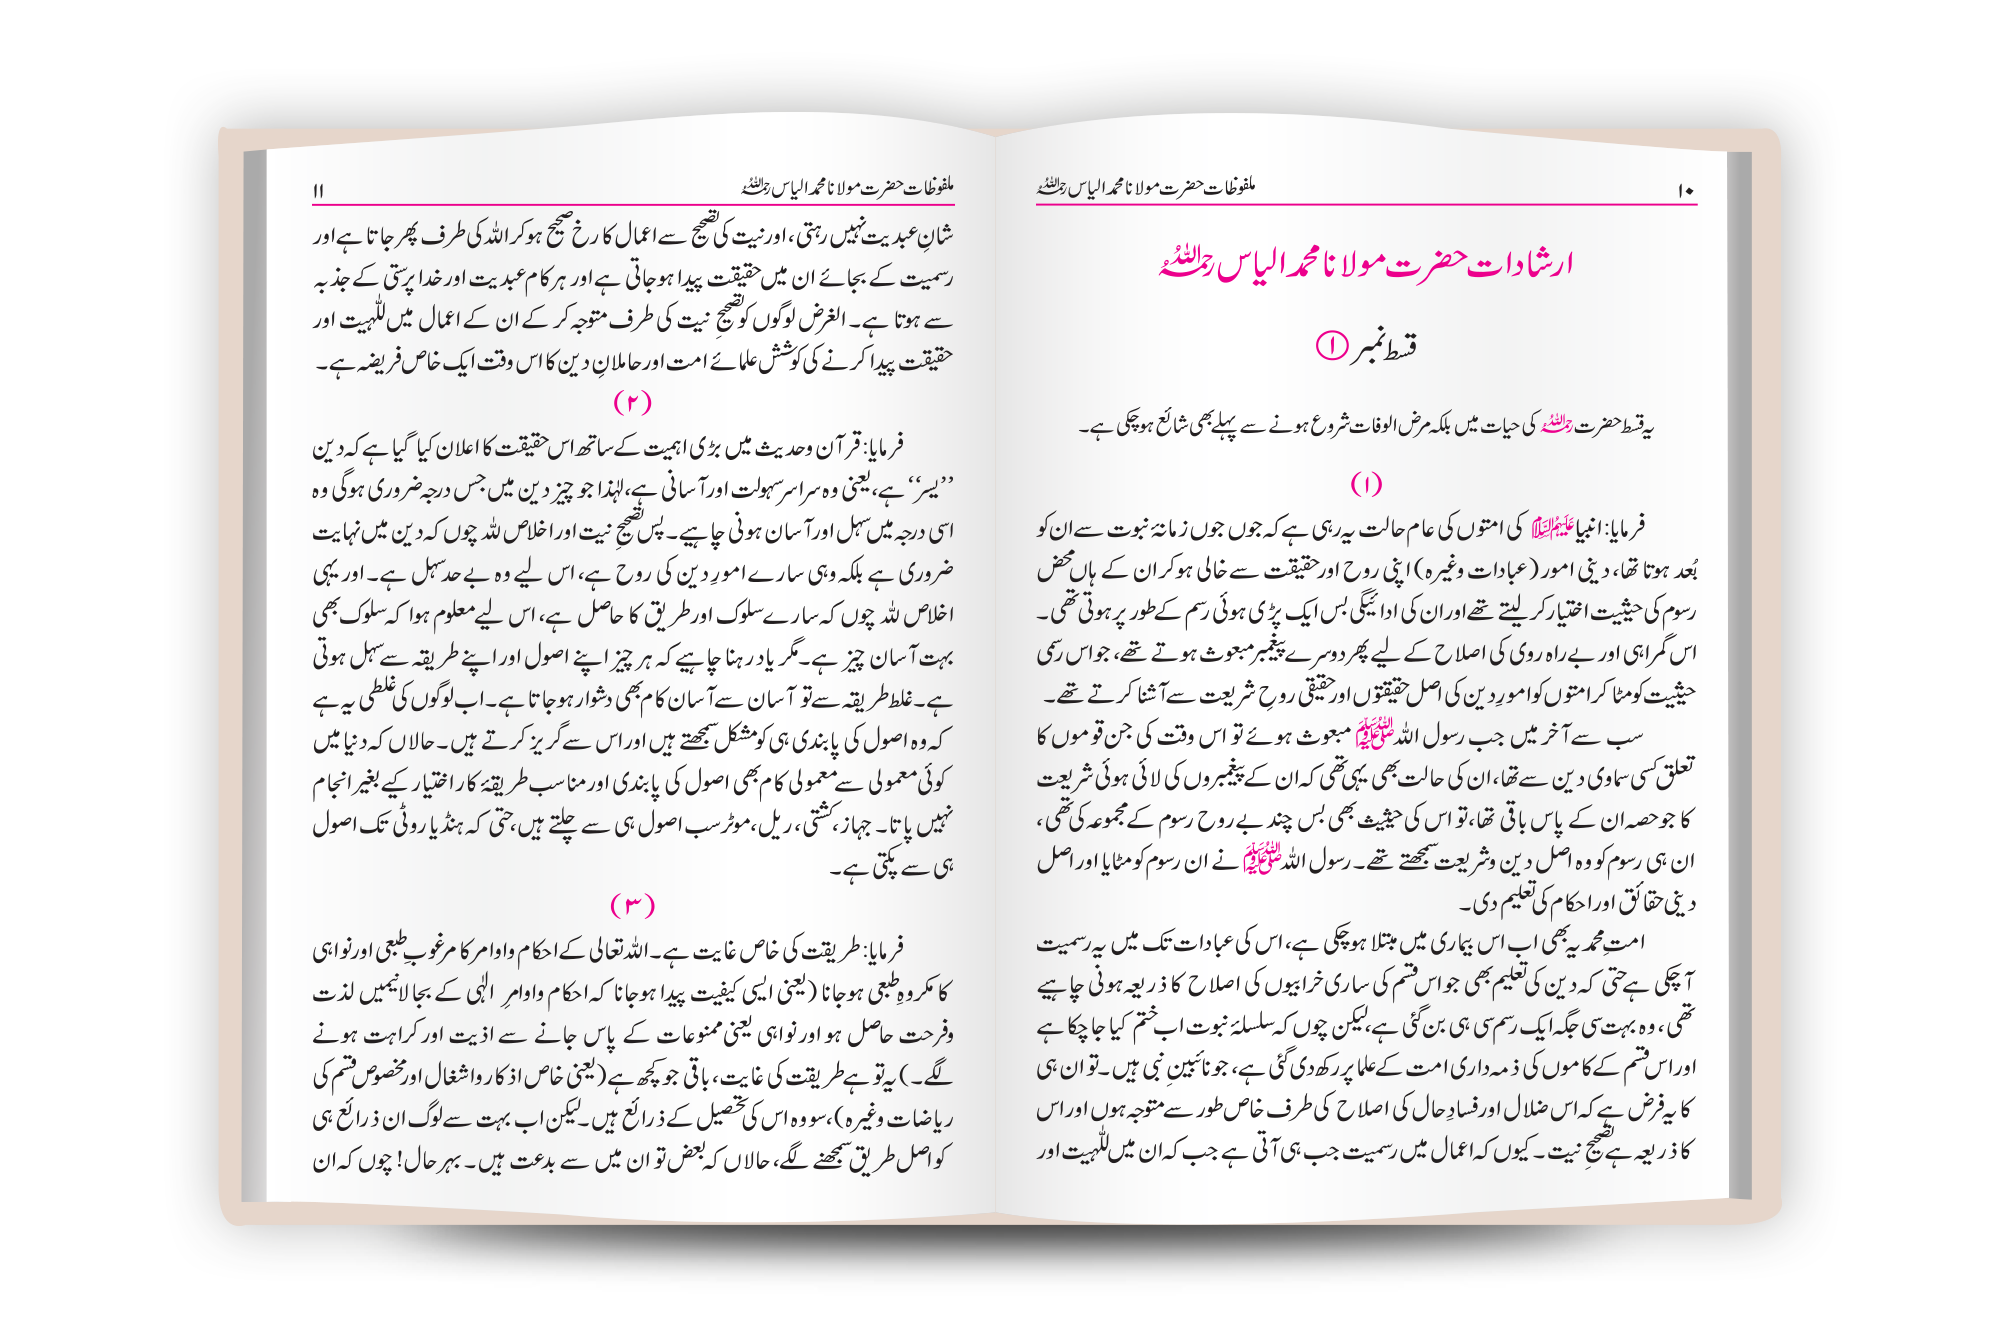 ۱۰ ملفوظات حضرت مولانا محمد الیاس رحمہ اللہ
ارشادات حضرت مولانا محمد الیاس رحمہ اللہ
قسط نمبر ۱
یہ قسط حضرت رحمہ اللہ کی حیات میں بلکہ مرض الوفات شروع ہونے سے پہلے بھی شائع ہوچکی ہے۔
(۱)
فرمایا: انبیا علیہم السلام کی امتوں کی عام حالت یہ رہی ہے کہ جوں جوں زمانۂ نبوت سے ان کو
بُعد ہوتا تھا، دینی امور (عبادات وغیرہ) اپنی روح اور حقیقت سے خالی ہوکر ان کے ہاں محض
رسوم کی حیثیت اختیار کر لیتے تھے اور ان کی ادائیگی بس ایک پڑی ہوئی رسم کے طور پر ہوتی تھی۔
اس گمراہی اور بے راہ روی کی اصلاح کے لیے پھر دوسرے پیغمبر مبعوث ہوتے تھے، جو اس رسمی
حیثیت کو مٹا کر امتوں کو امورِ دین کی اصل حقیقتوں اور حقیقی روحِ شریعت سے آشنا کرتے تھے۔
سب سے آخر میں جب رسول اللہ ﷺ مبعوث ہوئے تو اس وقت کی جن قوموں کا
تعلق کسی سماوی دین سے تھا، ان کی حالت بھی یہی تھی کہ ان کے پیغمبروں کی لائی ہوئی شریعت
کا جو حصہ ان کے پاس باقی تھا، تو اس کی حیثیت بھی بس چند بے روح رسوم کے مجموعہ کی تھی،
ان ہی رسوم کو وہ اصل دین وشریعت سمجھتے تھے۔ رسول اللہ ﷺ نے ان رسوم کو مٹایا اور اصل
دینی حقائق اور احکام کی تعلیم دی۔
امتِ محمدیہ بھی اب اس بیماری میں مبتلا ہوچکی ہے، اس کی عبادات تک میں یہ رسمیت
آچکی ہے حتی کہ دین کی تعلیم بھی جو اس قسم کی ساری خرابیوں کی اصلاح کا ذریعہ ہونی چاہیے
تھی، وہ بہت سی جگہ ایک رسم سی ہی بن گئی ہے، لیکن چوں کہ سلسلۂ نبوت اب ختم کیا جاچکا ہے
اور اس قسم کے کاموں کی ذمہ داری امت کے علما پر رکھ دی گئی ہے، جو نائبینِ نبی ہیں۔ تو ان ہی
کا یہ فرض ہے کہ اس ضلال اور فسادِ حال کی اصلاح کی طرف خاص طور سے متوجہ ہوں اور اس
کا ذریعہ ہے تصحیحِ نیت۔ کیوں کہ اعمال میں رسمیت جب ہی آتی ہے جب کہ ان میں للّٰہیت اور
ملفوظات حضرت مولانا محمد الیاس رحمہ اللہ ۱۱
شانِ عبدیت نہیں رہتی، اور نیت کی تصحیح سے اعمال کا رخ صحیح ہوکر اللہ کی طرف پھر جاتا ہے اور
رسمیت کے بجائے ان میں حقیقت پیدا ہوجاتی ہے اور ہر کام عبدیت اور خدا پرستی کے جذبہ
سے ہوتا ہے۔ الغرض لوگوں کو تصحیحِ نیت کی طرف متوجہ کر کے ان کے اعمال میں للّٰہیت اور
حقیقت پیدا کرنے کی کوشش علمائے امت اور حاملانِ دین کا اس وقت ایک خاص فریضہ ہے۔
(۲)
فرمایا: قرآن وحدیث میں بڑی اہمیت کے ساتھ اس حقیقت کا اعلان کیا گیا ہے کہ دین
’’یسر‘‘ ہے، یعنی وہ سراسر سہولت اور آسانی ہے، لہٰذا جو چیز دین میں جس درجہ ضروری ہوگی وہ
اسی درجہ میں سہل اور آسان ہونی چاہیے۔ پس تصحیحِ نیت اور اخلاص للہ چوں کہ دین میں نہایت
ضروری ہے بلکہ وہی سارے امورِ دین کی روح ہے، اس لیے وہ بے حد سہل ہے۔ اور یہی
اخلاص للہ چوں کہ سارے سلوک اور طریق کا حاصل ہے، اس لیے معلوم ہوا کہ سلوک بھی
بہت آسان چیز ہے۔ مگر یاد رہنا چاہیے کہ ہر چیز اپنے اصول اور اپنے طریقہ سے سہل ہوتی
ہے۔ غلط طریقہ سے تو آسان سے آسان کام بھی دشوار ہوجاتا ہے۔ اب لوگوں کی غلطی یہ ہے
کہ وہ اصول کی پابندی ہی کو مشکل سمجھتے ہیں اور اس سے گریز کرتے ہیں۔ حالاں کہ دنیا میں
کوئی معمولی سے معمولی کام بھی اصول کی پابندی اور مناسب طریقۂ کار اختیار کیے بغیر انجام
نہیں پاتا۔ جہاز، کشتی، ریل، موٹر سب اصول ہی سے چلتے ہیں، حتی کہ ہنڈیا روٹی تک اصول
ہی سے پکتی ہے۔
(۳)
فرمایا: طریقت کی خاص غایت ہے۔ اللہ تعالی کے احکام واوامر کا مرغوبِ طبعی اور نواہی
کا مکروہِ طبعی ہوجانا (یعنی ایسی کیفیت پیدا ہوجانا کہ احکام واوامرِ الٰہی کے بجا لانیمیں لذت
وفرحت حاصل ہو اور نواہی یعنی ممنوعات کے پاس جانے سے اذیت اور کراہت ہونے
لگے۔) یہ تو ہے طریقت کی غایت، باقی جو کچھ ہے (یعنی خاص اذکار واشغال اور مخصوص قسم کی
ریاضات وغیرہ)، سو وہ اس کی تحصیل کے ذرائع ہیں۔ لیکن اب بہت سے لوگ ان ذرائع ہی
کو اصل طریق سمجھنے لگے، حالاں کہ بعض تو ان میں سے بدعت ہیں۔ بہر حال! چوں کہ ان